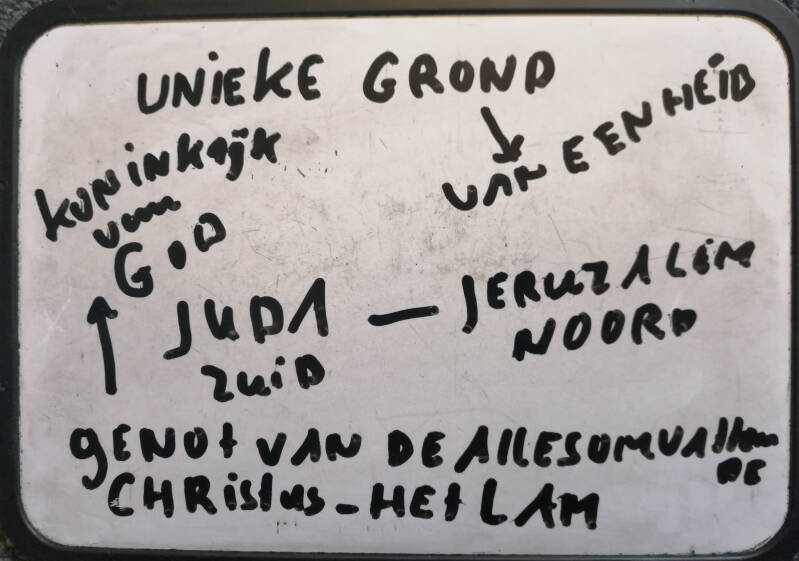 UNIEKE GROND
VAN EENHEID
KONINKRIJK
van
GOD
JUDA — JERUZALEM
ZUID NOORD
GENOT VAN DE ALLESOMVATTEN
DE
CHRISTUS - HET LAM